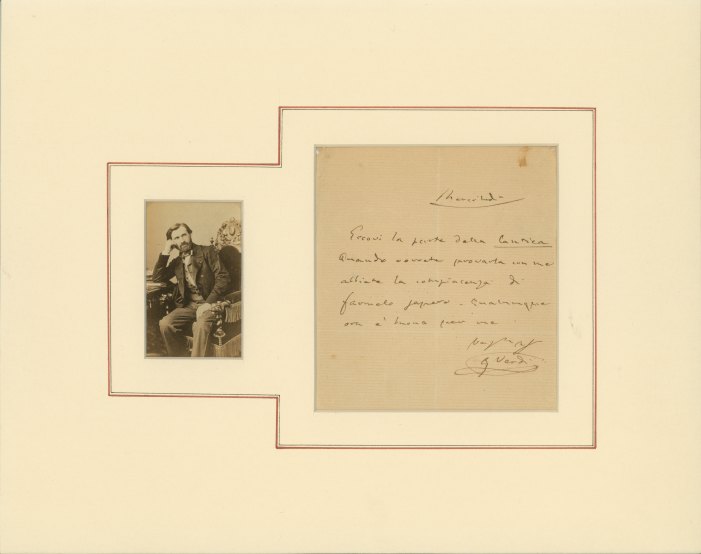 Mercoledì
Eccovi la parte della Cantica
Quando vorrete provarla con me
abbiate la compiacenza di
farmelo sapere - Qualunque
ora è buona per me
G Verdi